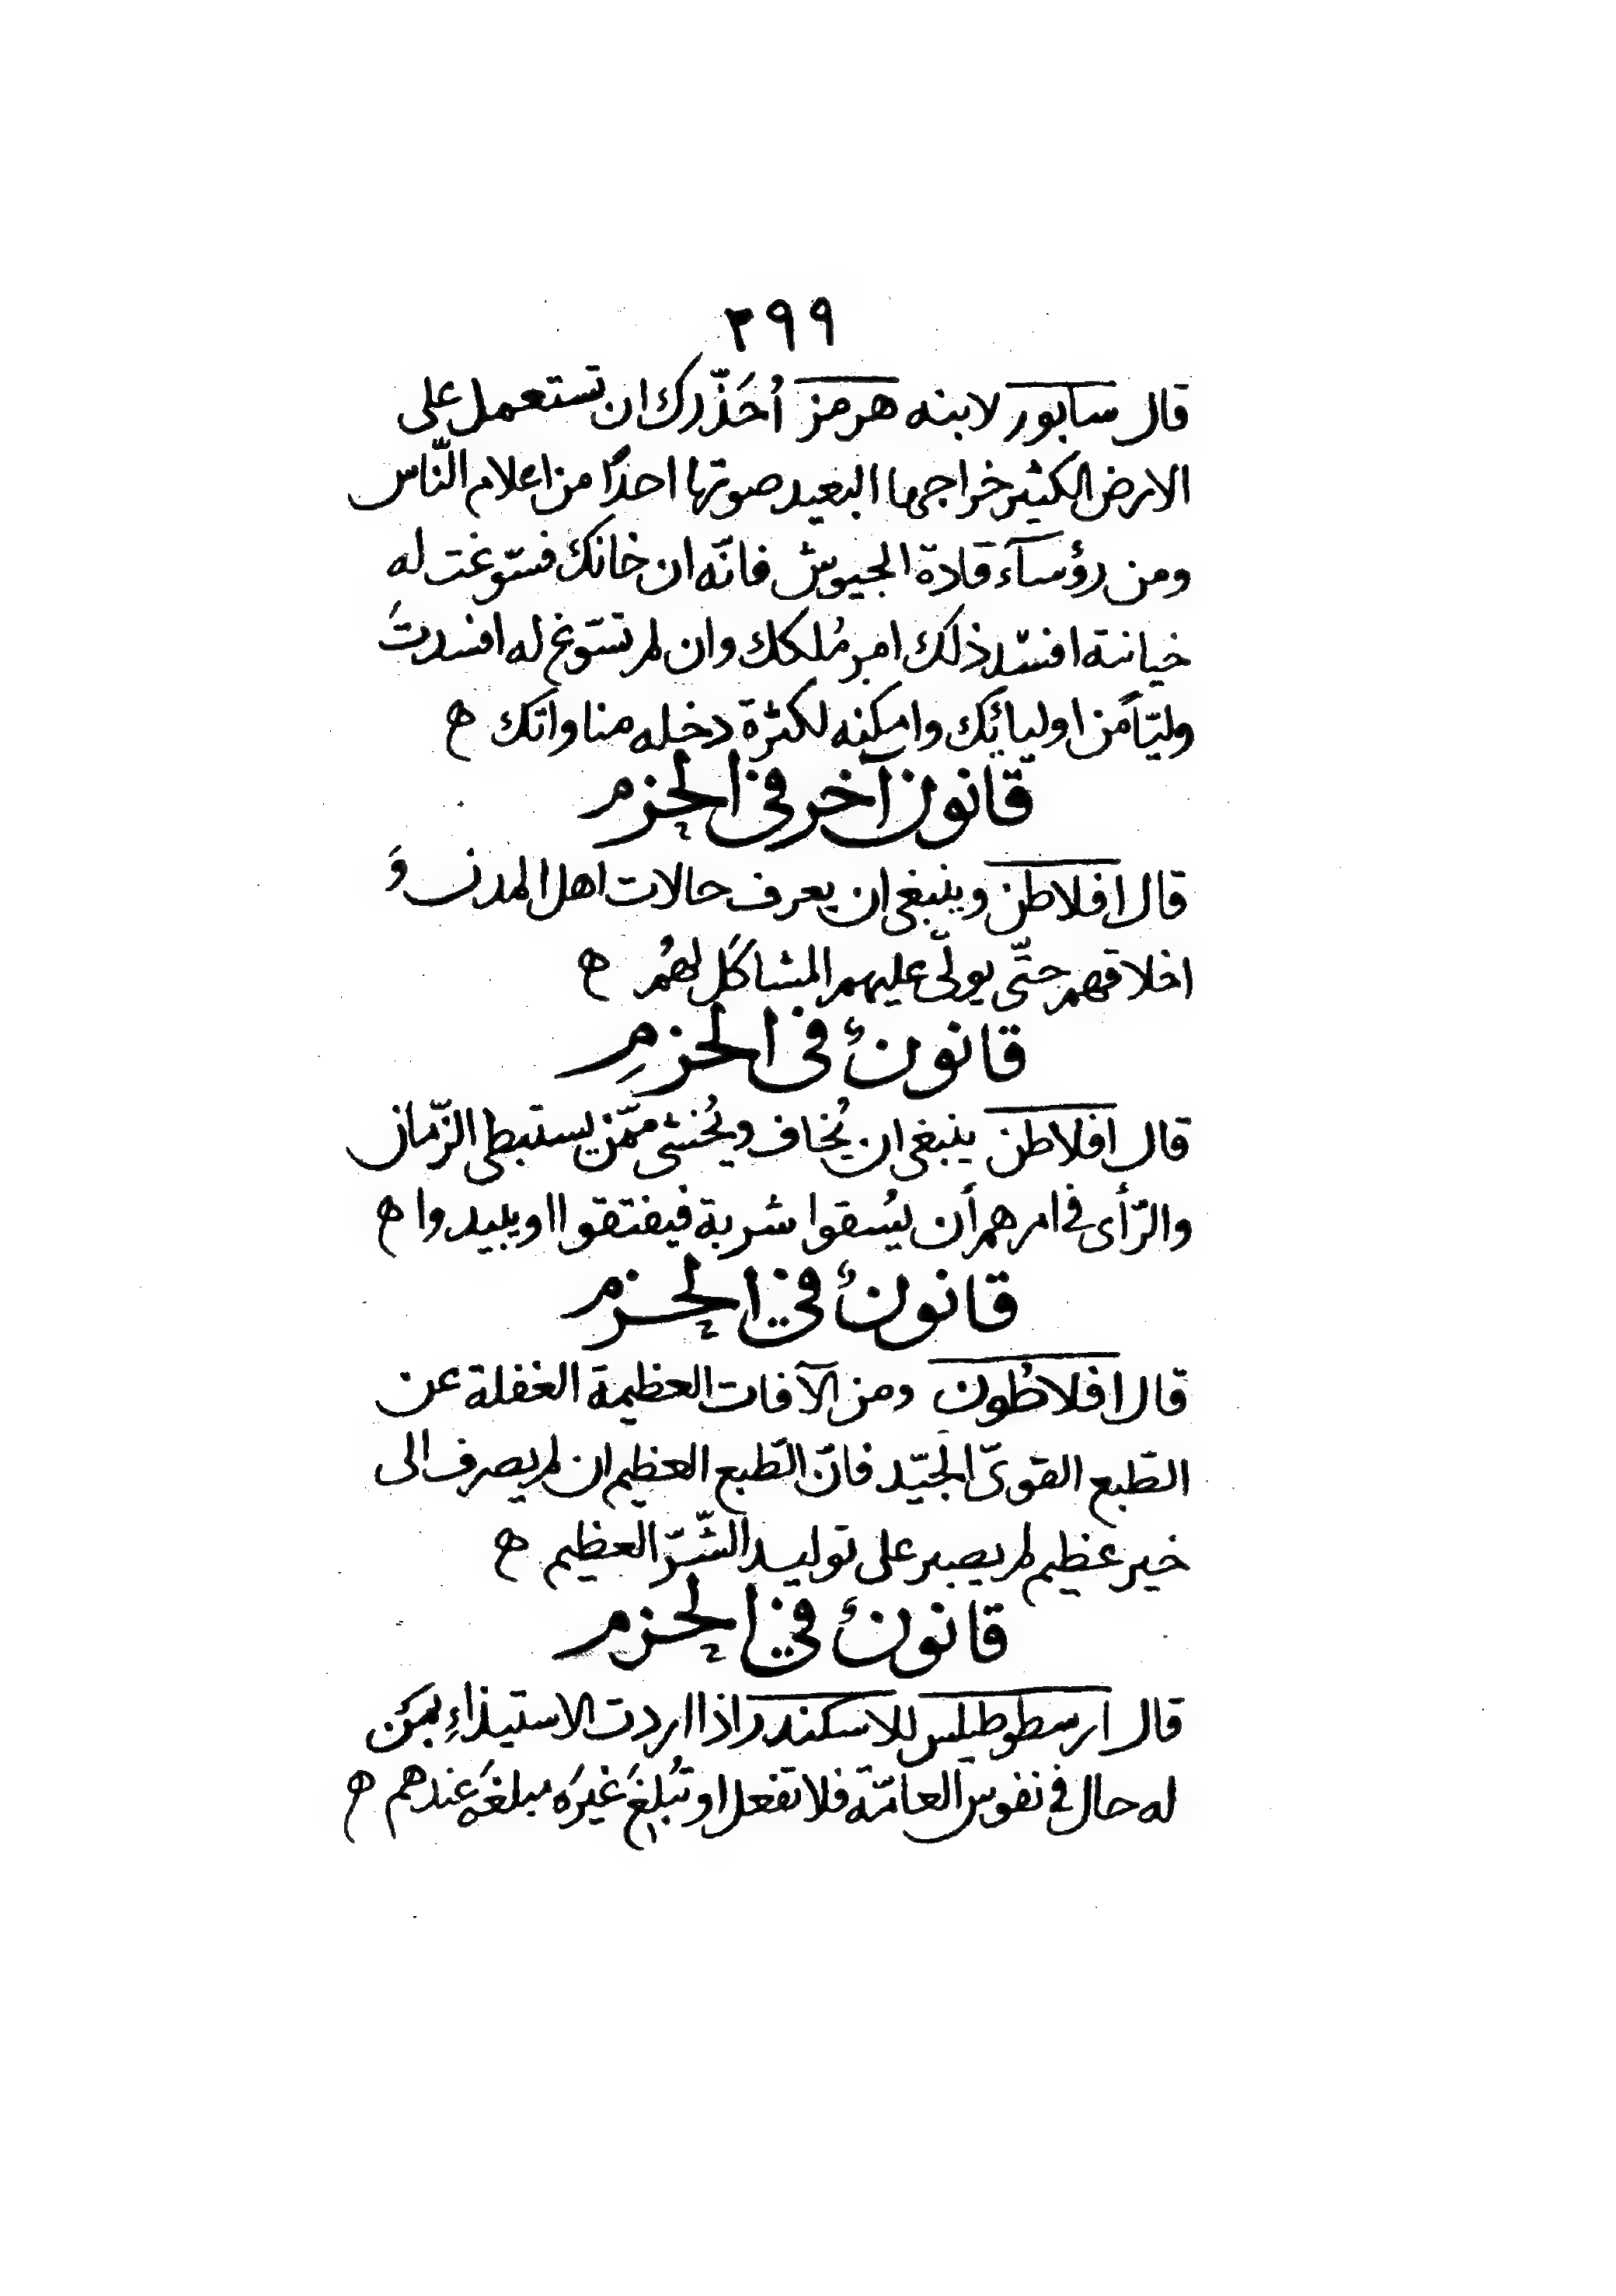 ٢٩٩
قال سابور لابنه هرمز أُحَذّرك ان تستعمل على
الارض الكثير خراجها البعيد صوتها احدًا من اعلام النّاس
ومن رؤسآء قادة الجيوش فانّه ان خانك فسّوغت له
خيانته افسد ذلك امر مُلكك وان لم تسّوغ له افسدتَ
وليّاً من اوليائك وامكنه لكثرة دخله مناواتك ه
قانون آخر في الحزم
قال افلاطن وينبغي ان يعرف حالات اهل المدن وَ
اخلاقهم حتّى يولّى عليهم المشاكل لهُم ه
قانونٌ فى الحزمِ
قال افلاطن ينبغي ان يُخاف ويُخشى ممّن يستبطى الزّمان
والرّأى في امرهم أن يُسقوا شربة فيفتقوا او يبيدوا ه
قانونٌ في الحزم
قال افلاطُون ومن الآفات العظيمة الغفلة عن
الطّبع القوىّ الجيّد فانّ الطّبع العظيم ان لم يصرف الى
خير عظيم لم يصبر على توليد الشّرّ العظيم ه
قانونٌ في الحزم
قال ارسطوطيلس للاسكندر اذا اردت الاستيذاءِ بمَن
له حال في نفوس العامّة فلا تفعل او تُبلغَ غيرَه مبلغَه عندهم ه